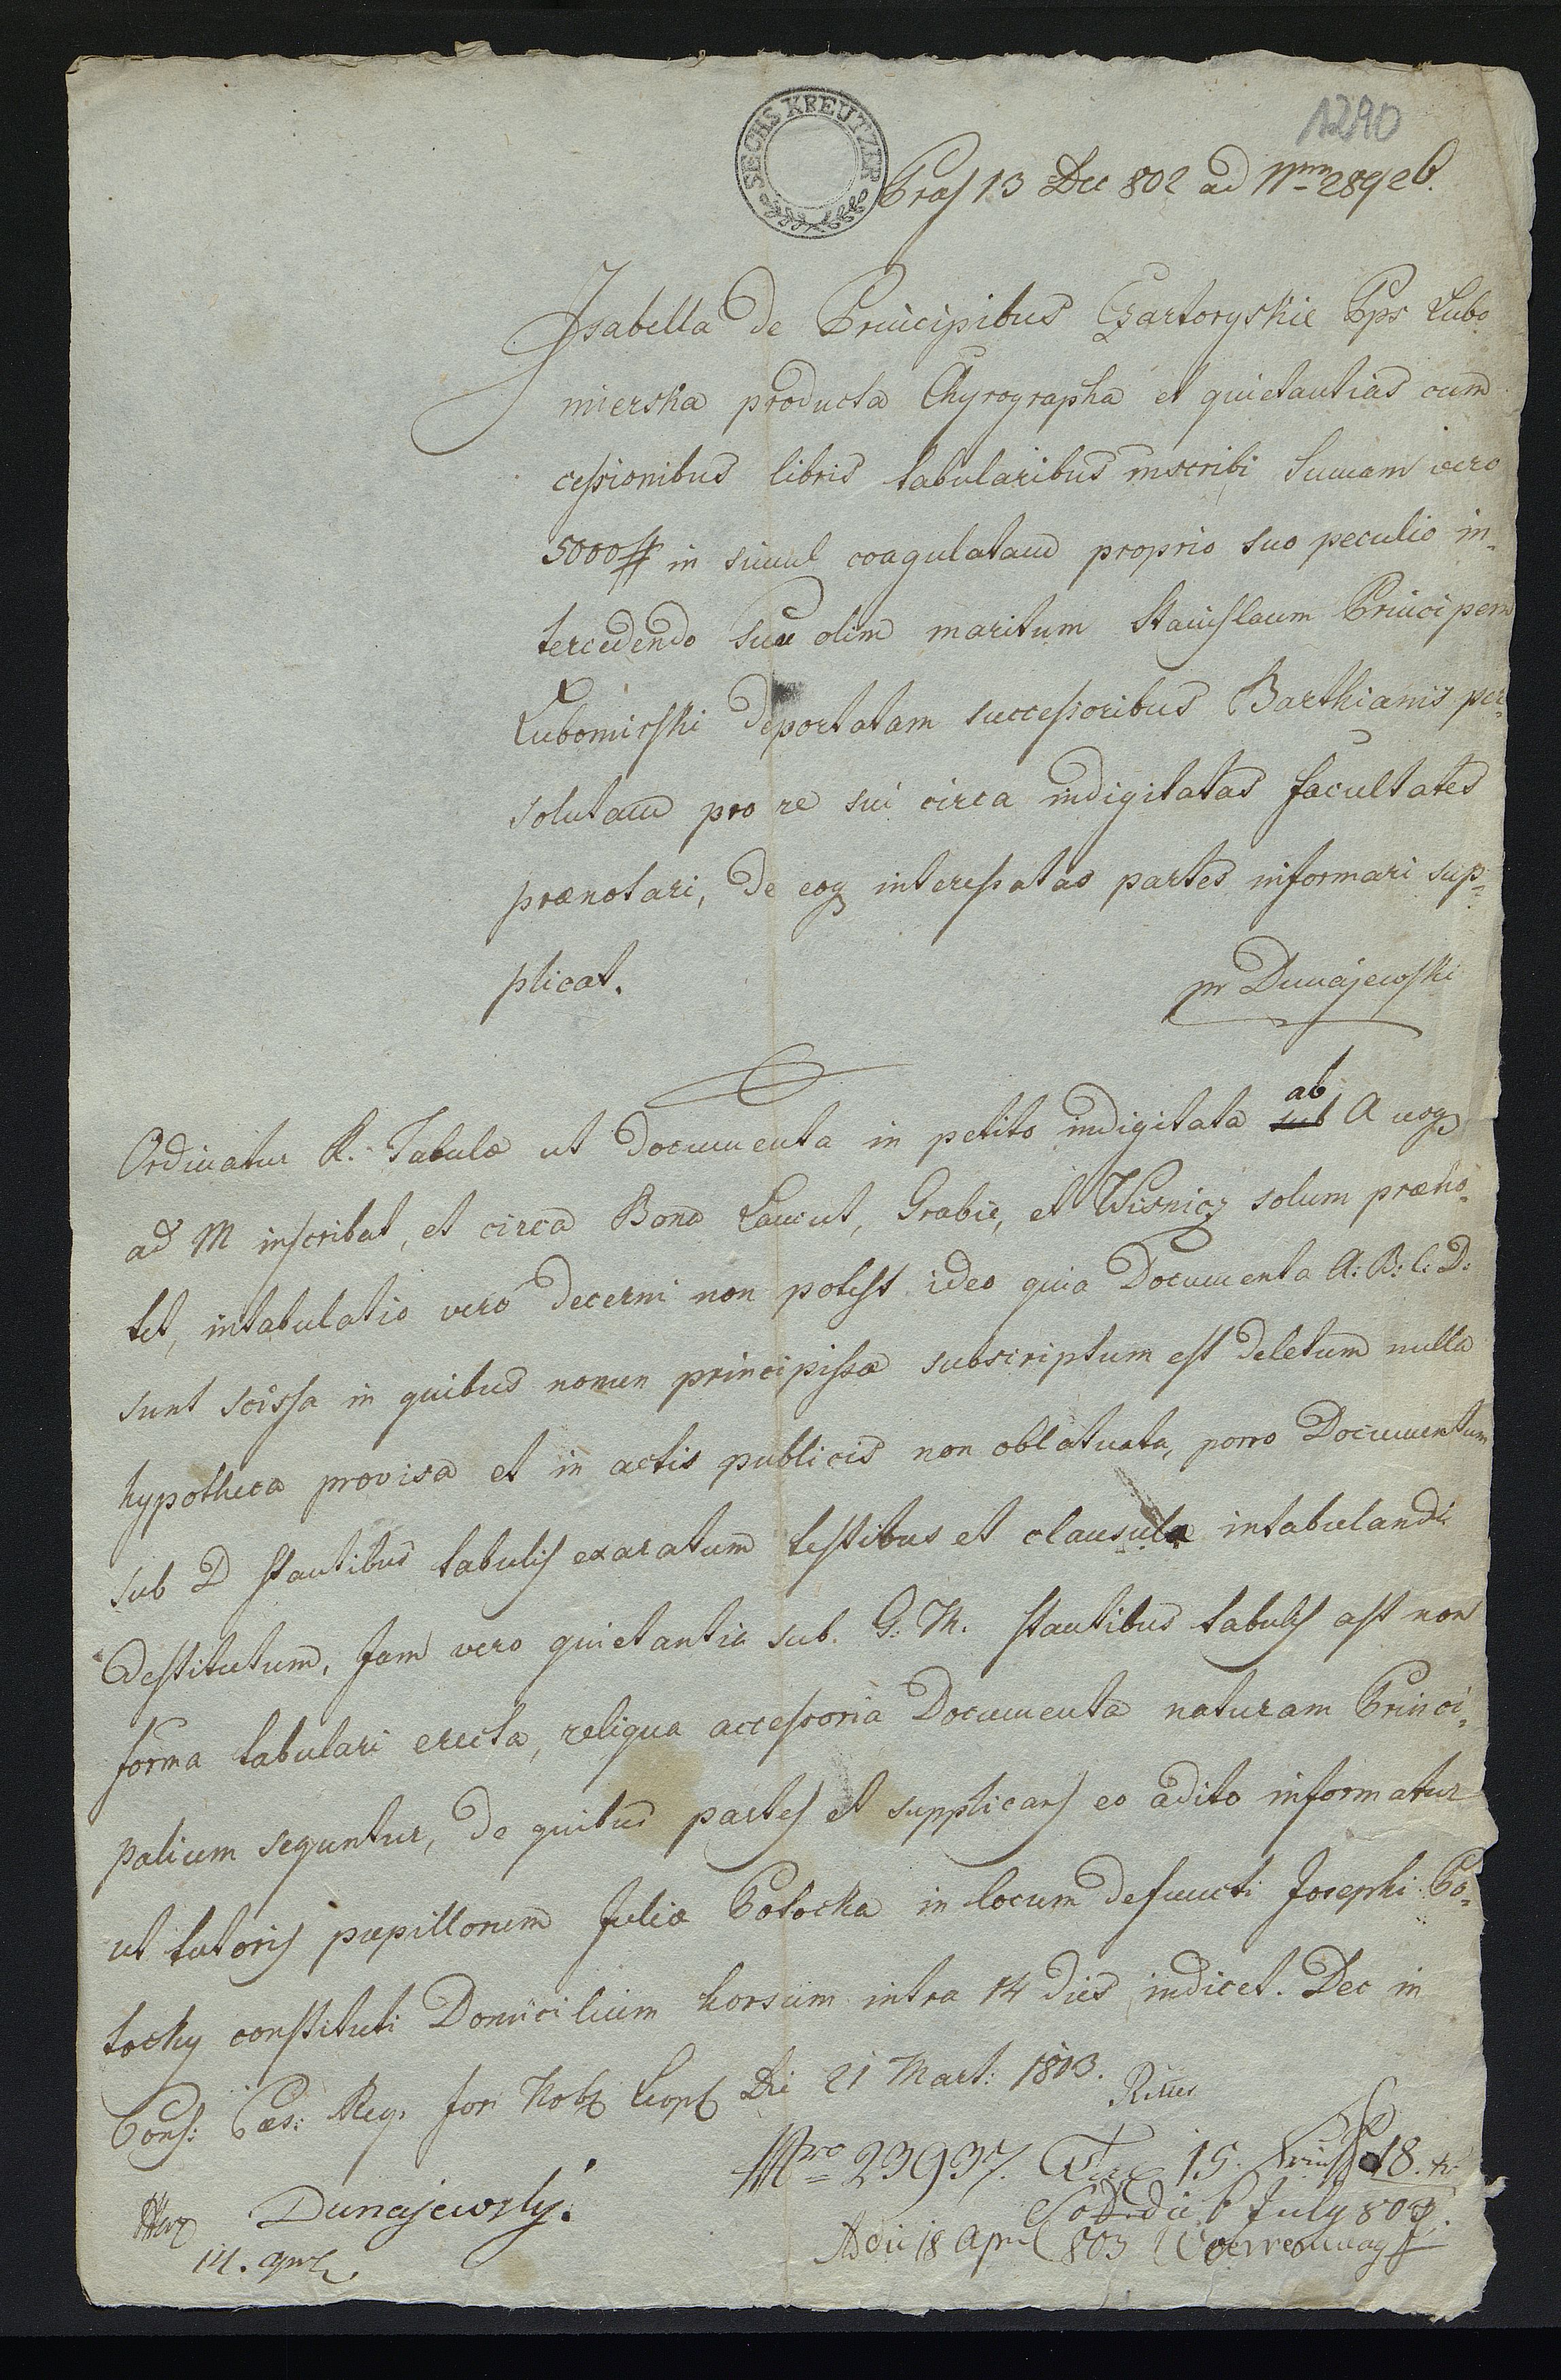 1290
SECHS KREUTZER
Præs 13 Dec 802 ad Nrum 28926.
Isabella de Principibus Czartoryskie Pps Lubo
mierska producta Chyrographa et quietantias cum
cessionibus libris tabularibus inscribi Sumam vero
5000# in simul coagulatam proprio suo peculio in-
tercedendo sua olim maritum Stanislaum Principem
Lubomirski deportatam successoribus Barthianis per-
solutam pro re sui circa indigitatas facultates
prænotari, de eoq interessatas partes informari sup-
plicat.
pr Dunajewski
Ordinatur R. Tabulæ ut Documenta in petito indigitata sub ab A usq
ad M inscribat, et circa Bona Lancut, Grabie, et Wisnicz solum præno-
tet, intabulatio vero decerni non potest ideo quia Documenta A: B: C: D:
sunt scissa in quibus nomen principissæ subscriptum est deletum nulla
hypotheca provisa et in actis publicis non oblatuata, porro Documentum
sub D stantibus tabulis exaratum testibus et clausula intabulandi
destitutum, Jam vero quietantiæ sub. G: M. stantibus tabulis ast non
forma tabulari erecta, reliqua accessoria Documenta naturam Princi-
palium sequntur, de quibus partes et supplicans eo adito informatur
ut tutoris pupillorum Juliæ Potocka in locum defuncti Josephi Po-
tocky constituti Domicilium horsum intra 14 dies indicet. Dec in
Cons: Cæs: Reg. Fori Nob Leopol Die 21 Mart: 1803.
Nro 23937. 15. 18. x
Dunajewsky.
6 July 803.
14. Adii 18 Apr 803